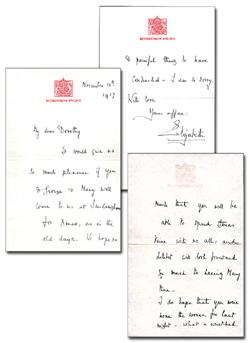 BUCKINGHAM PALACE
November 10th
My dear Dorothy
It would give us
so much pleasure if you
& George & Mary will
come to us at Sandringham
for Xmas, as in the
old days. We hope so
much that you will be
able to spend
time with us all, and
look forward
so much to seeing Mary
I do hope that you were
none the worse for last
night - what a
BUCKINGHAM PALACE
painful thing to have
contracted - I am so sorry.
With love
Your affec:
Elizabeth